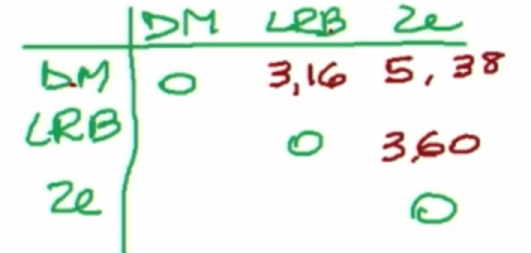 DM LRB Ze
DM 0 3,16 5,38
LRB 0 3,60
Ze 0